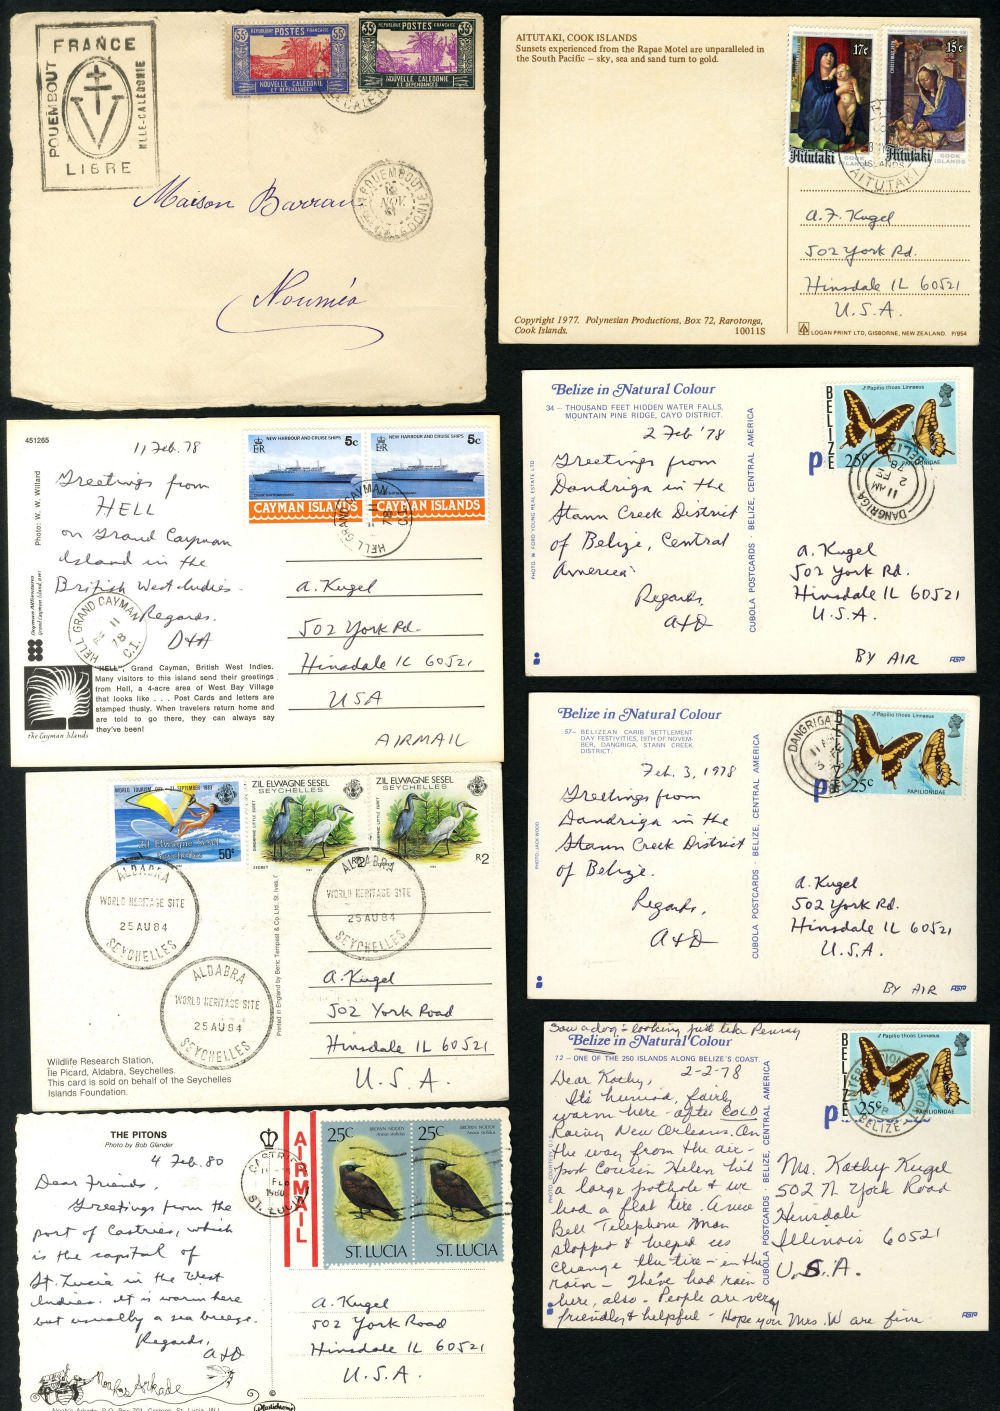 FRANCE
POUEMBOUT
NLLE-CALÉDONIE
LIBRE
POSTES FRANÇAISE
NOUVELLE CALÉDONIE
ET DÉPENDANCES
POSTES FRANÇAISE
35c
NOUVELLE CALÉDONIE
ET DÉPENDANCES
POUEMBOUT
Maison Barrau
Nouméa
AITUTAKI, COOK ISLANDS
Sunsets experienced from the Rapae Motel are unparalleled in
the South Pacific – sky, sea and sand turn to gold.
17c
15c
Aitutaki
COOK
ISLANDS
Aitutaki
COOK
ISLANDS
AITUTAKI
A. F. Kugel
502 York Rd.
Hinsdale IL 60521
U.S.A.
Copyright 1977. Polynesian Productions, Box 72, Rarotonga,
Cook Islands.
10011S
LOGAN PRINT LTD, GISBORNE, NEW ZEALAND. P/954
451265
Photo: W. W. Willard
11 Feb. 78
Greetings from
HELL
on Grand Cayman
Island in the
British West Indies.
Regards.
D+A
NEW HARBOUR AND CRUISE SHIPS
5c
CAYMAN ISLANDS
NEW HARBOUR AND CRUISE SHIPS
5c
CAYMAN ISLANDS
HELL GRAND CAYMAN
11
78
C.I.
HELL GRAND CAYMAN
11
78
C.I.
A. Kugel
502 York Rd.
Hinsdale IL 60521
USA
AIRMAIL
"HELL", Grand Cayman, British West Indies.
Many visitors to this island send their greetings
from Hell, a 4-acre area of West Bay Village
that looks like . . . Post Cards and letters are
stamped thusly. When travelers return home and
are told to go there, they can always say
they've been!
the Cayman Islands
Belize in Natural Colour
34 — THOUSAND FEET HIDDEN WATER FALLS,
MOUNTAIN PINE RIDGE, CAYO DISTRICT.
2 Feb '78
Greetings from
Dandriga in the
Stann Creek District
of Belize, Central
America.
Regards,
A+D
PHOTO: W. FORD YOUNG REAL ESTATE LTD
CUBOLA POSTCARDS · BELIZE, CENTRAL AMERICA
BELIZE
Papilio thoas Linnaeus
25c
PAPILIONIDAE
DANGRIGA
11 AM
2 FE
78
BELIZE
A. Kugel
502 York Rd.
Hinsdale IL 60521
U.S.A.
BY AIR
Belize in Natural Colour
57— BELIZEAN CARIB SETTLEMENT
DAY FESTIVITIES, 19TH OF NOVEM-
BER, DANGRIGA, STANN CREEK
DISTRICT.
Feb. 3, 1978
Greetings from
Dandriga in the
Stann Creek District
of Belize.
Regards,
A+D
PHOTO: JACK WOOD
CUBOLA POSTCARDS · BELIZE, CENTRAL AMERICA
Papilio thoas Linnaeus
25c
PAPILIONIDAE
DANGRIGA
A. Kugel
502 York Rd.
Hinsdale IL 60521
U.S.A.
BY AIR
WORLD TOURISM DAY – 27 SEPTEMBER 1983
Zil Elwagne Sesel
Seychelles
50c
ZIL ELWAGNE SESEL
SEYCHELLES
R2
ZIL ELWAGNE SESEL
SEYCHELLES
R2
ALDABRA
WORLD HERITAGE SITE
25 AU 84
SEYCHELLES
ALDABRA
WORLD HERITAGE SITE
25 AU 84
SEYCHELLES
ALDABRA
WORLD HERITAGE SITE
25 AU 84
SEYCHELLES
A. Kugel
502 York Road
Hinsdale IL 60521
U.S.A.
Wildlife Research Station,
Île Picard, Aldabra, Seychelles.
This card is sold on behalf of the Seychelles
Islands Foundation.
Saw a dog – looking just like Penny
Belize in Natural Colour
72 — ONE OF THE 250 ISLANDS ALONG BELIZE'S COAST.
2-2-78
Dear Kathy,
It's humid, fairly
warm here – after COLD
Rainy New Orleans. On
the way from the air-
port Cousin Helen hit
a large pothole & we
had a flat tire. A nice
Bell Telephone man
stopped & helped us
change the tire – in the
rain – They've had rain
here, also. People are very
friendly & helpful – Hope you Mrs. W are fine
CUBOLA POSTCARDS · BELIZE, CENTRAL AMERICA
BELIZE
Papilio thoas Linnaeus
25c
PAPILIONIDAE
BELIZE
Ms. Kathy Kugel
502 N York Road
Hinsdale
Illinois 60521
U.S.A.
THE PITONS
Photo by Bob Glander
4 Feb. 80
Dear Friends,
Greetings from the
port of Castries, which
is the capital of
St. Lucia in the West
Indies. It is warm here
but usually a sea breeze.
Regards,
A+D
Noah's Arkade
CASTRIES
FEB
1980
ST. LUCIA
AIRMAIL
25c
BROWN NODDY
Anous stolidus
ST. LUCIA
25c
BROWN NODDY
Anous stolidus
ST. LUCIA
A. Kugel
502 York Road
Hinsdale IL 60521
U.S.A.